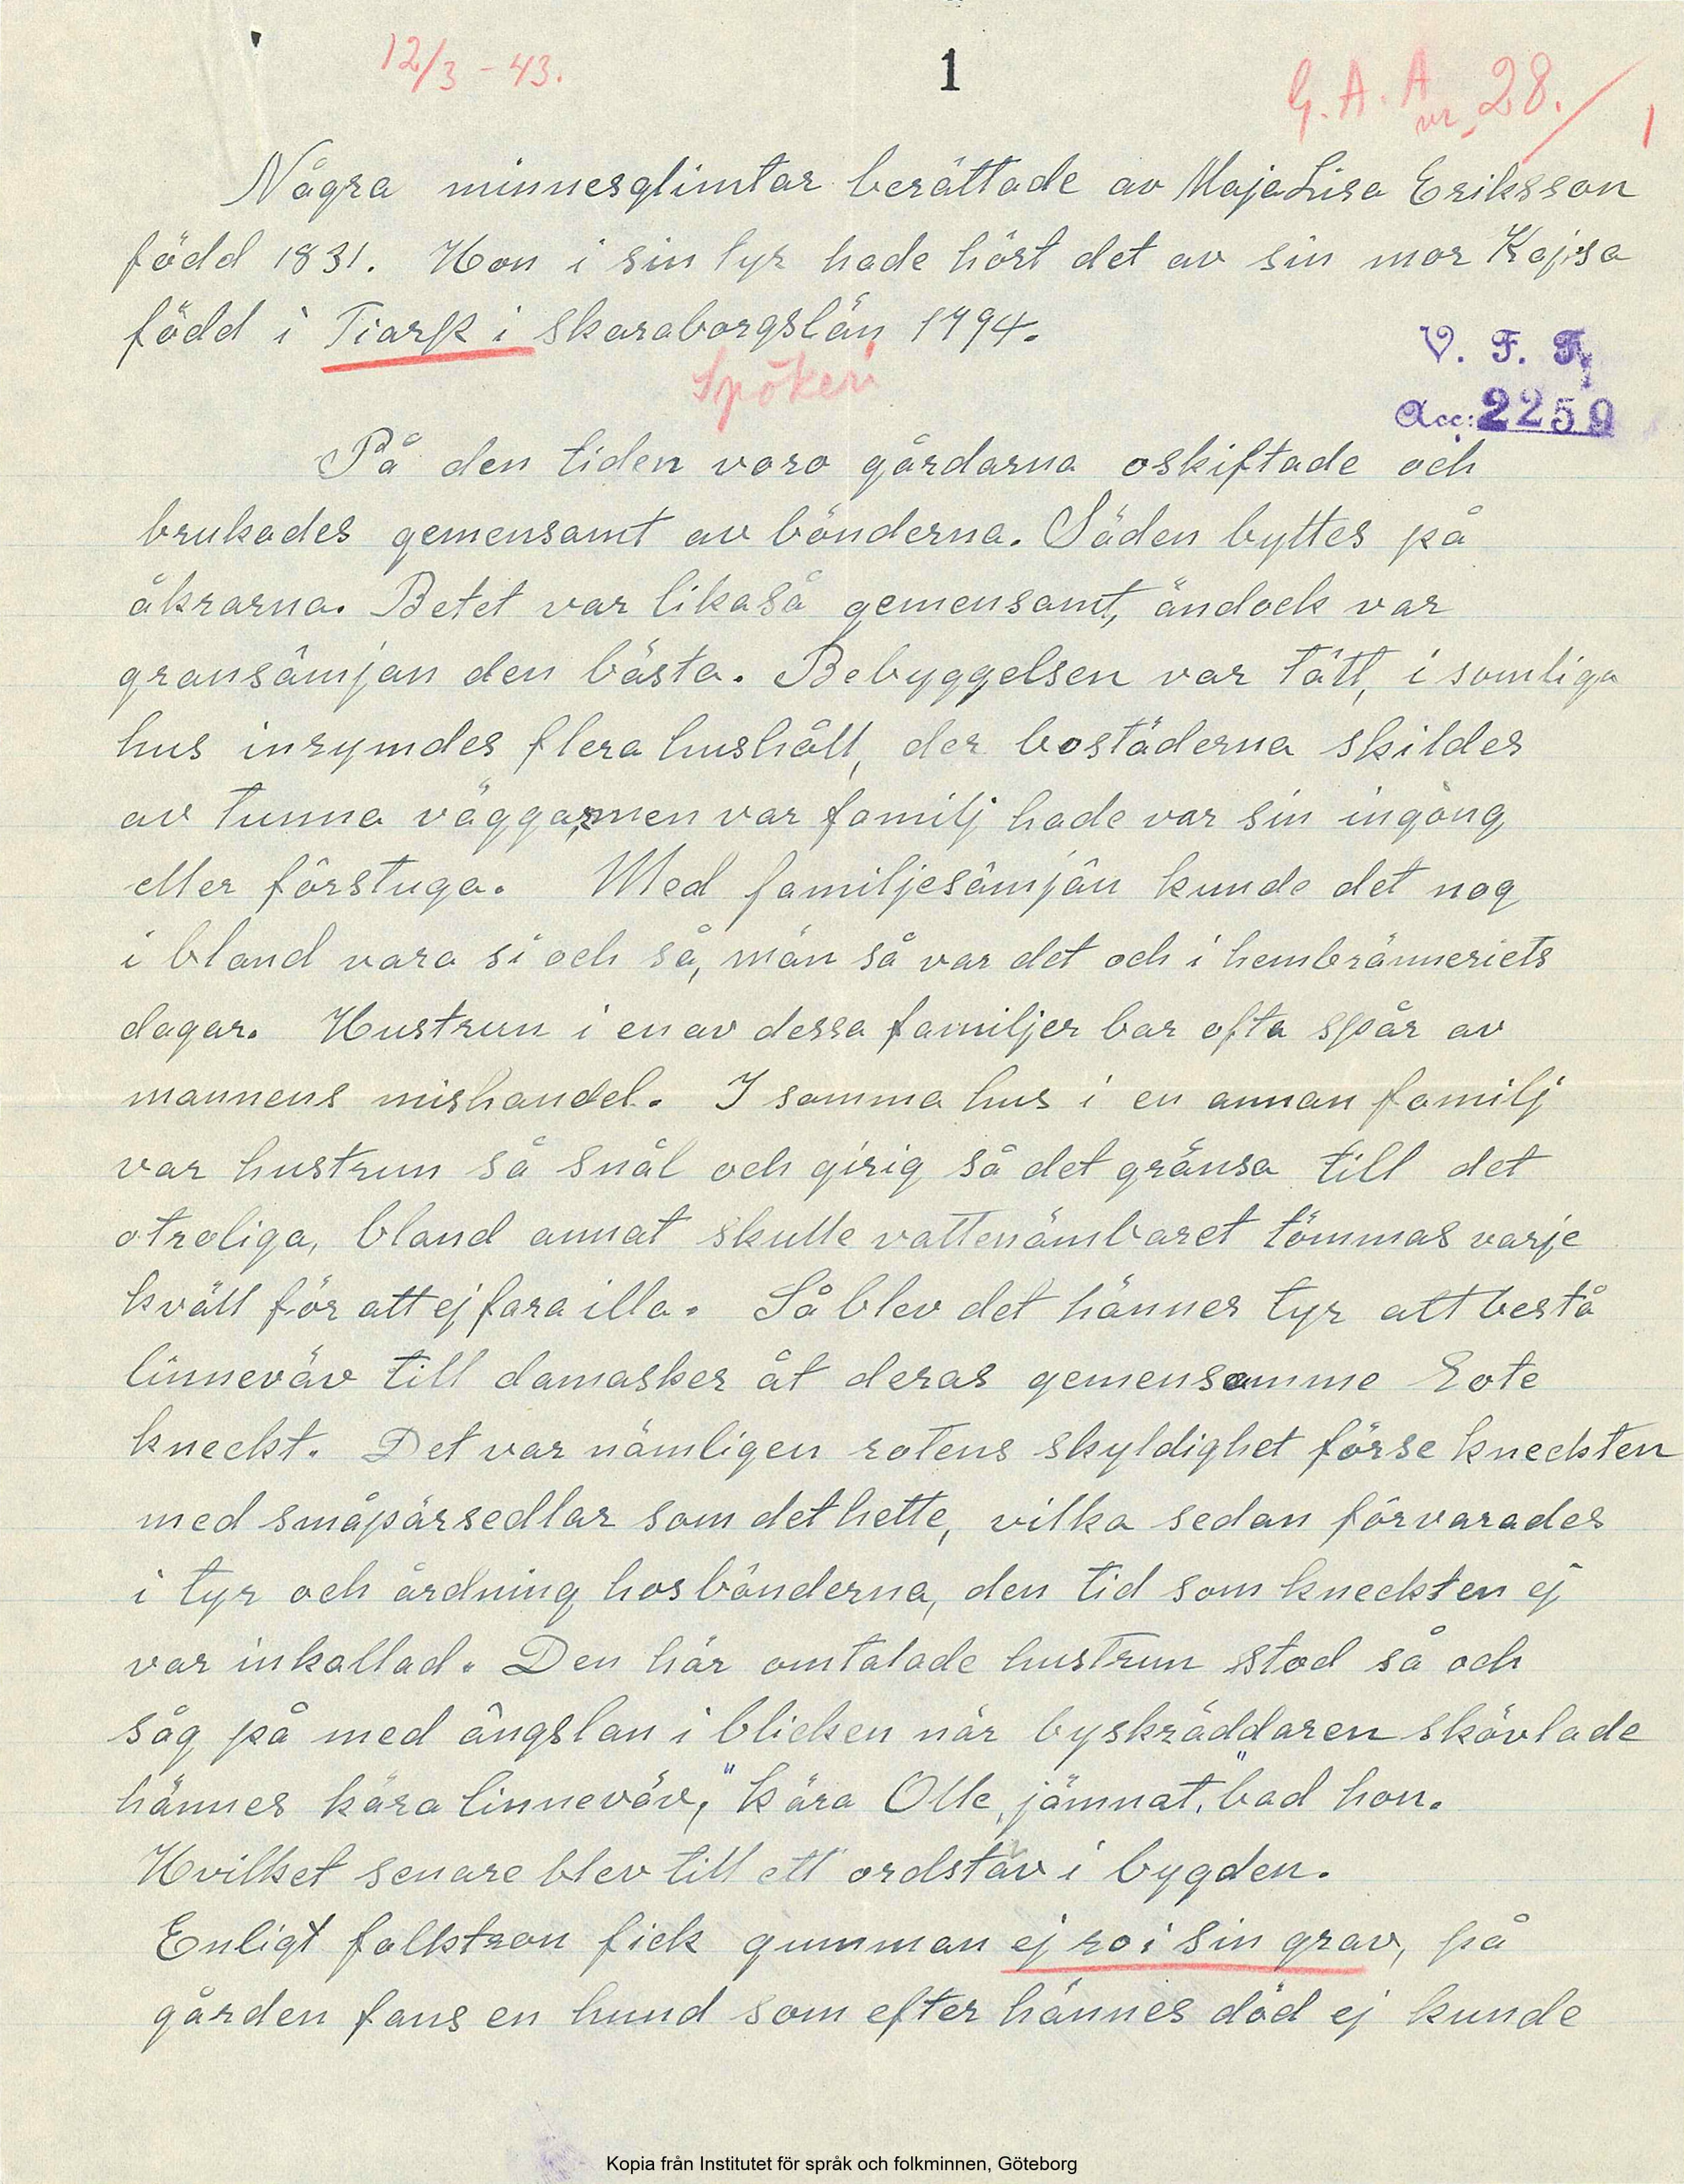 12/3 - 43.
1
G. A. A nr. 28. / 1
Några minnesglimtar berättade av Maja Lisa Eriksson
född 1831. Hon i sin tyr hade hört det av sin mor Kajsa
född i Tiarp i Skaraborgslän 1794.
Spökeri
V. F. F.
Acc: 2259
På den tiden voro gårdarna oskiftade och
brukades gemensamt av bönderna. Säden byttes på
åkrarna. Betet var likaså gemensamt, ändock var
gransämjan den bästa. Bebyggelsen var tätt, i somliga
hus inrymdes flera hushåll, der bostäderna skildes
av tunna väggar, men var familj hade var sin ingång
eller förstuga. Med familjesämjän kunde det nog
i bland vara si och så, män så var det och i hembränneriets
dagar. Hustrun i en av dessa familjer bar ofta spår av
mannens mishandel. I samma hus i en annan familj
var hustrun så snål och girig så det gränsa till det
otroliga, bland annat skulle vattenämbaret tömmas varje
kväll för att ej fara illa. Så blev det hännes tyr att bestå
linneväv till damasker åt deras gemensamme Rote
kneckt. Det var nämligen rotens skyldighet förse kneckten
med småpärsedlar som det hette, vilka sedan förvarades
i tyr och årdning hos bönderna, den tid som kneckten ej
var inkallad. Den här omtalade hustrun stod så och
såg på med ängslan i blicken när byskräddaren skävlade
hännes kära linneväv, "kära Olle, jämnat," bad hon.
Hvilket senare blev till ett ordstäv i bygden.
Enligt folktron fick gumman ej ro i sin grav, på
gården fans en hund som efter hännes död ej kunde
Kopia från Institutet för språk och folkminnen, Göteborg